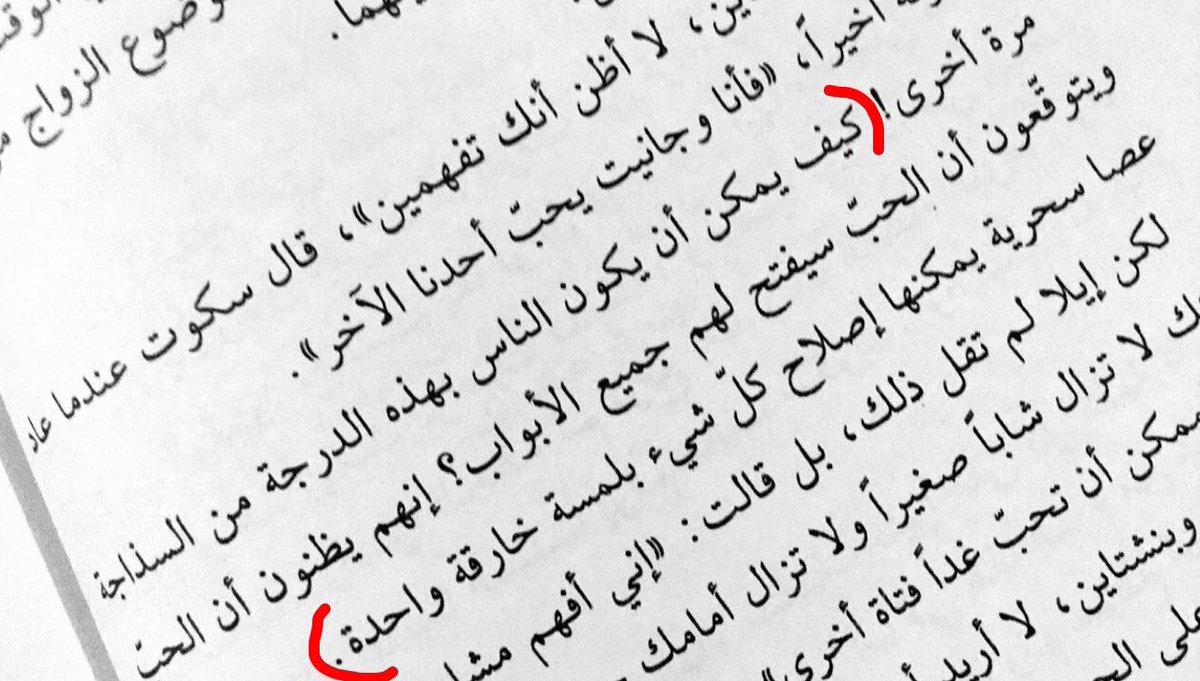 الزواج
لا أظن أنك تفهمين»، قال سكوت عندما عاد
أخيراً، «فأنا وجانيت يحبّ أحدنا الآخر».
مرة أخرى! كيف يمكن أن يكون الناس بهذه الدرجة من السذاجة
ويتوقّعون أن الحبّ سيفتح لهم جميع الأبواب؟ إنهم يظنون أن الحبّ
عصا سحرية يمكنها إصلاح كلّ شيء بلمسة خارقة واحدة.
لكن إيلا لم تقل ذلك، بل قالت: «إني أفهم
لا تزال شاباً صغيراً ولا تزال أمامك
يمكن أن تحبّ غداً فتاة أخرى»
وبنشتاين، لا أريد